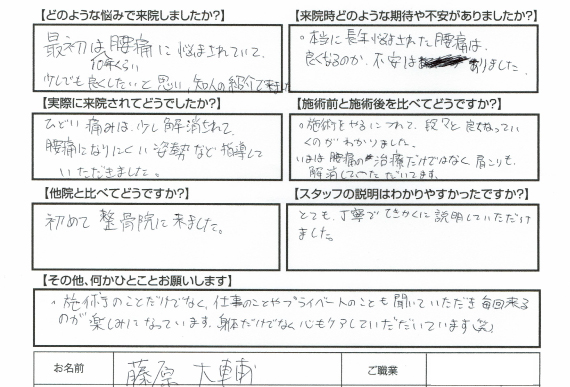 【どのような悩みで来院しましたか?】
最初は腰痛に悩まされていて、
10年くらい
少しでも良くしたいと思い、知人の紹介で来ました
【来院時どのような期待や不安がありましたか?】
。本当に長年悩まされた腰痛は、
良くなるのか、不安は ありました。
【実際に来院されてどうでしたか?】
ひどい痛みは、少し解消されて、
腰痛になりにくい姿勢など指導して
いただきました。
【施術前と施術後を比べてどうですか?】
。施術をやるにつれて、段々と良くなってい
くのがわかりました。
いまは腰痛の治療だけではなく肩こりも、
解消していただいてます。
【他院と比べてどうですか?】
初めて整骨院に来ました。
【スタッフの説明はわかりやすかったですか?】
とても、丁寧で てきかくに説明していただけ
ました。
【その他、何かひとことお願いします】
。施術のことだけでなく、仕事のことやプライベートのことも聞いていただき毎回来る
のが楽しみになっています、身体だけでなく心もケアしていただいています(笑)
お名前
藤原 大輔
ご職業